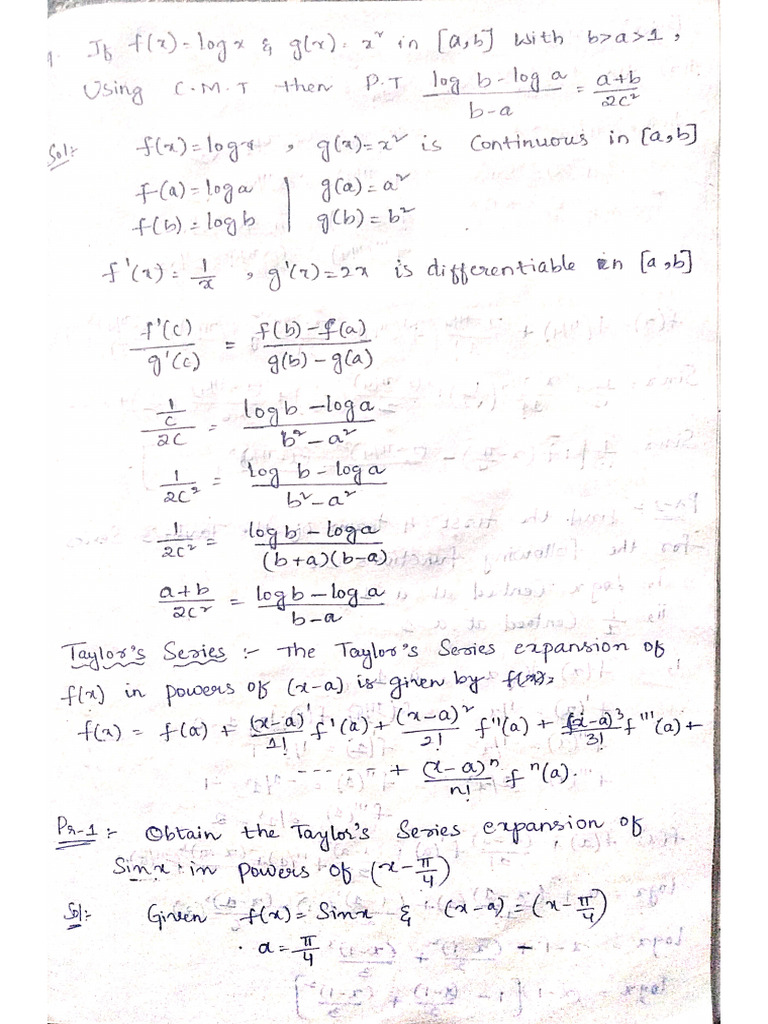 9. If f(x) = log x & g(x) = x² in [a,b] with b>a>1,
Using C.M.T then P.T (log b - log a)/(b-a) = (a+b)/2c²
Sol:- f(x) = log x , g(x) = x² is continuous in [a,b]
f(a) = log a | g(a) = a²
f(b) = log b | g(b) = b²
f'(x) = 1/x , g'(x) = 2x is differentiable in [a,b]
f'(c)/g'(c) = (f(b) - f(a))/(g(b) - g(a))
(1/c)/2c = (log b - log a)/(b² - a²)
1/2c² = (log b - log a)/(b² - a²)
1/2c² = (log b - log a)/((b+a)(b-a))
(a+b)/2c² = (log b - log a)/(b-a)
Taylor's Series :- The Taylor's Series expansion of
f(x) in powers of (x-a) is given by f(x),
f(x) = f(a) + (x-a)¹/1! f'(a) + (x-a)²/2! f''(a) + (x-a)³/3! f'''(a) +
------ + (x-a)ⁿ/n! fⁿ(a).
Pr-1 :- Obtain the Taylor's Series expansion of
Sinx in powers of (x - π/4)
Sol:- Given f(x) = Sinx & (x-a) = (x - π/4)
a = π/4